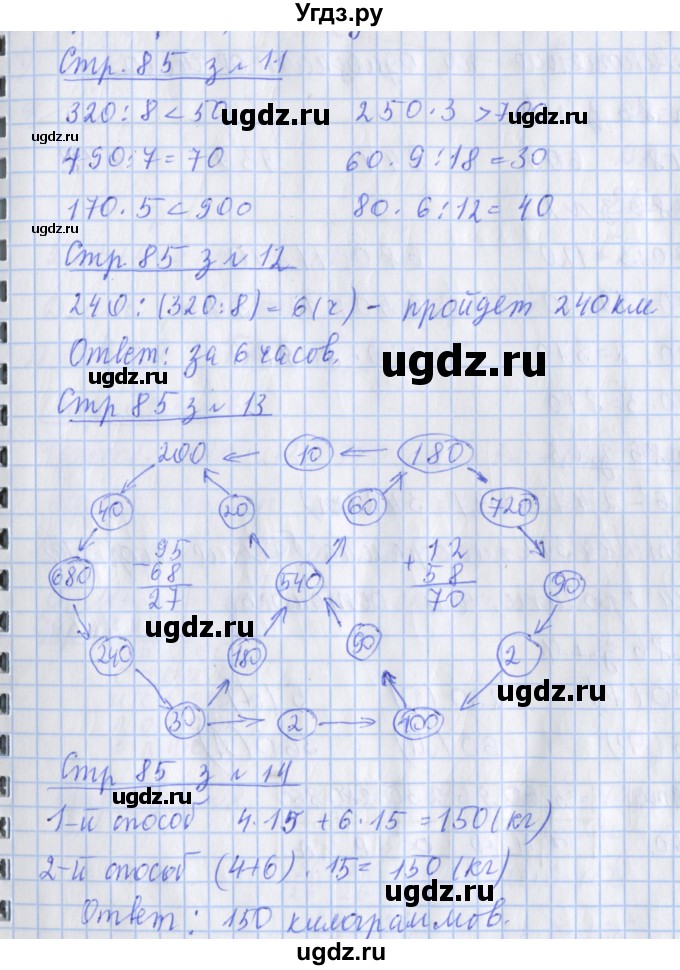 Угдз.ру
Стр. 85 з № 11
320 : 8 < 50 250 · 3 > 700
490 : 7 = 70 60 · 9 : 18 = 30
170 · 5 < 900 80 · 6 : 12 = 40
Стр 85 з № 12
240 : (320:8) = 6 (ч) - пройдет 240 км
Ответ: за 6 часов.
Стр 85 з № 13
200 ← 10 ← 180
40 20 60 720
95 - 68 27
12 + 58 70
680 540 90
240 180 90 2
30 → 2 → 400
Стр 85 з № 14
1-й способ 4·15 + 6·15 = 150 (кг)
2-й способ (4+6) · 15 = 150 (кг)
Ответ: 150 килограммов.
ugdz.ru
ugdz.ru
ugdz.ru
ugdz.ru
ugdz.ru
ugdz.ru
ugdz.ru
ugdz.ru
ugdz.ru
ugdz.ru
ugdz.ru
ugdz.ru